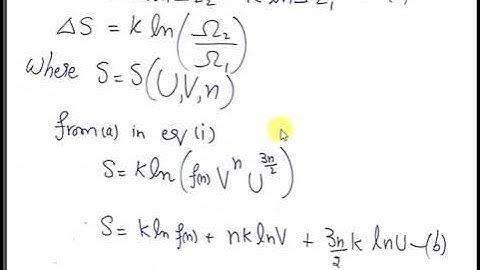 ΔS = K ln(Ω₂/Ω₁)
Where S = S(U,V,n)
from (a) in eq (i)
S = K ln(f(n) V^n U^(3n/2))
S = K ln f(n) + nK lnV + 3n/2 K lnU —(b)